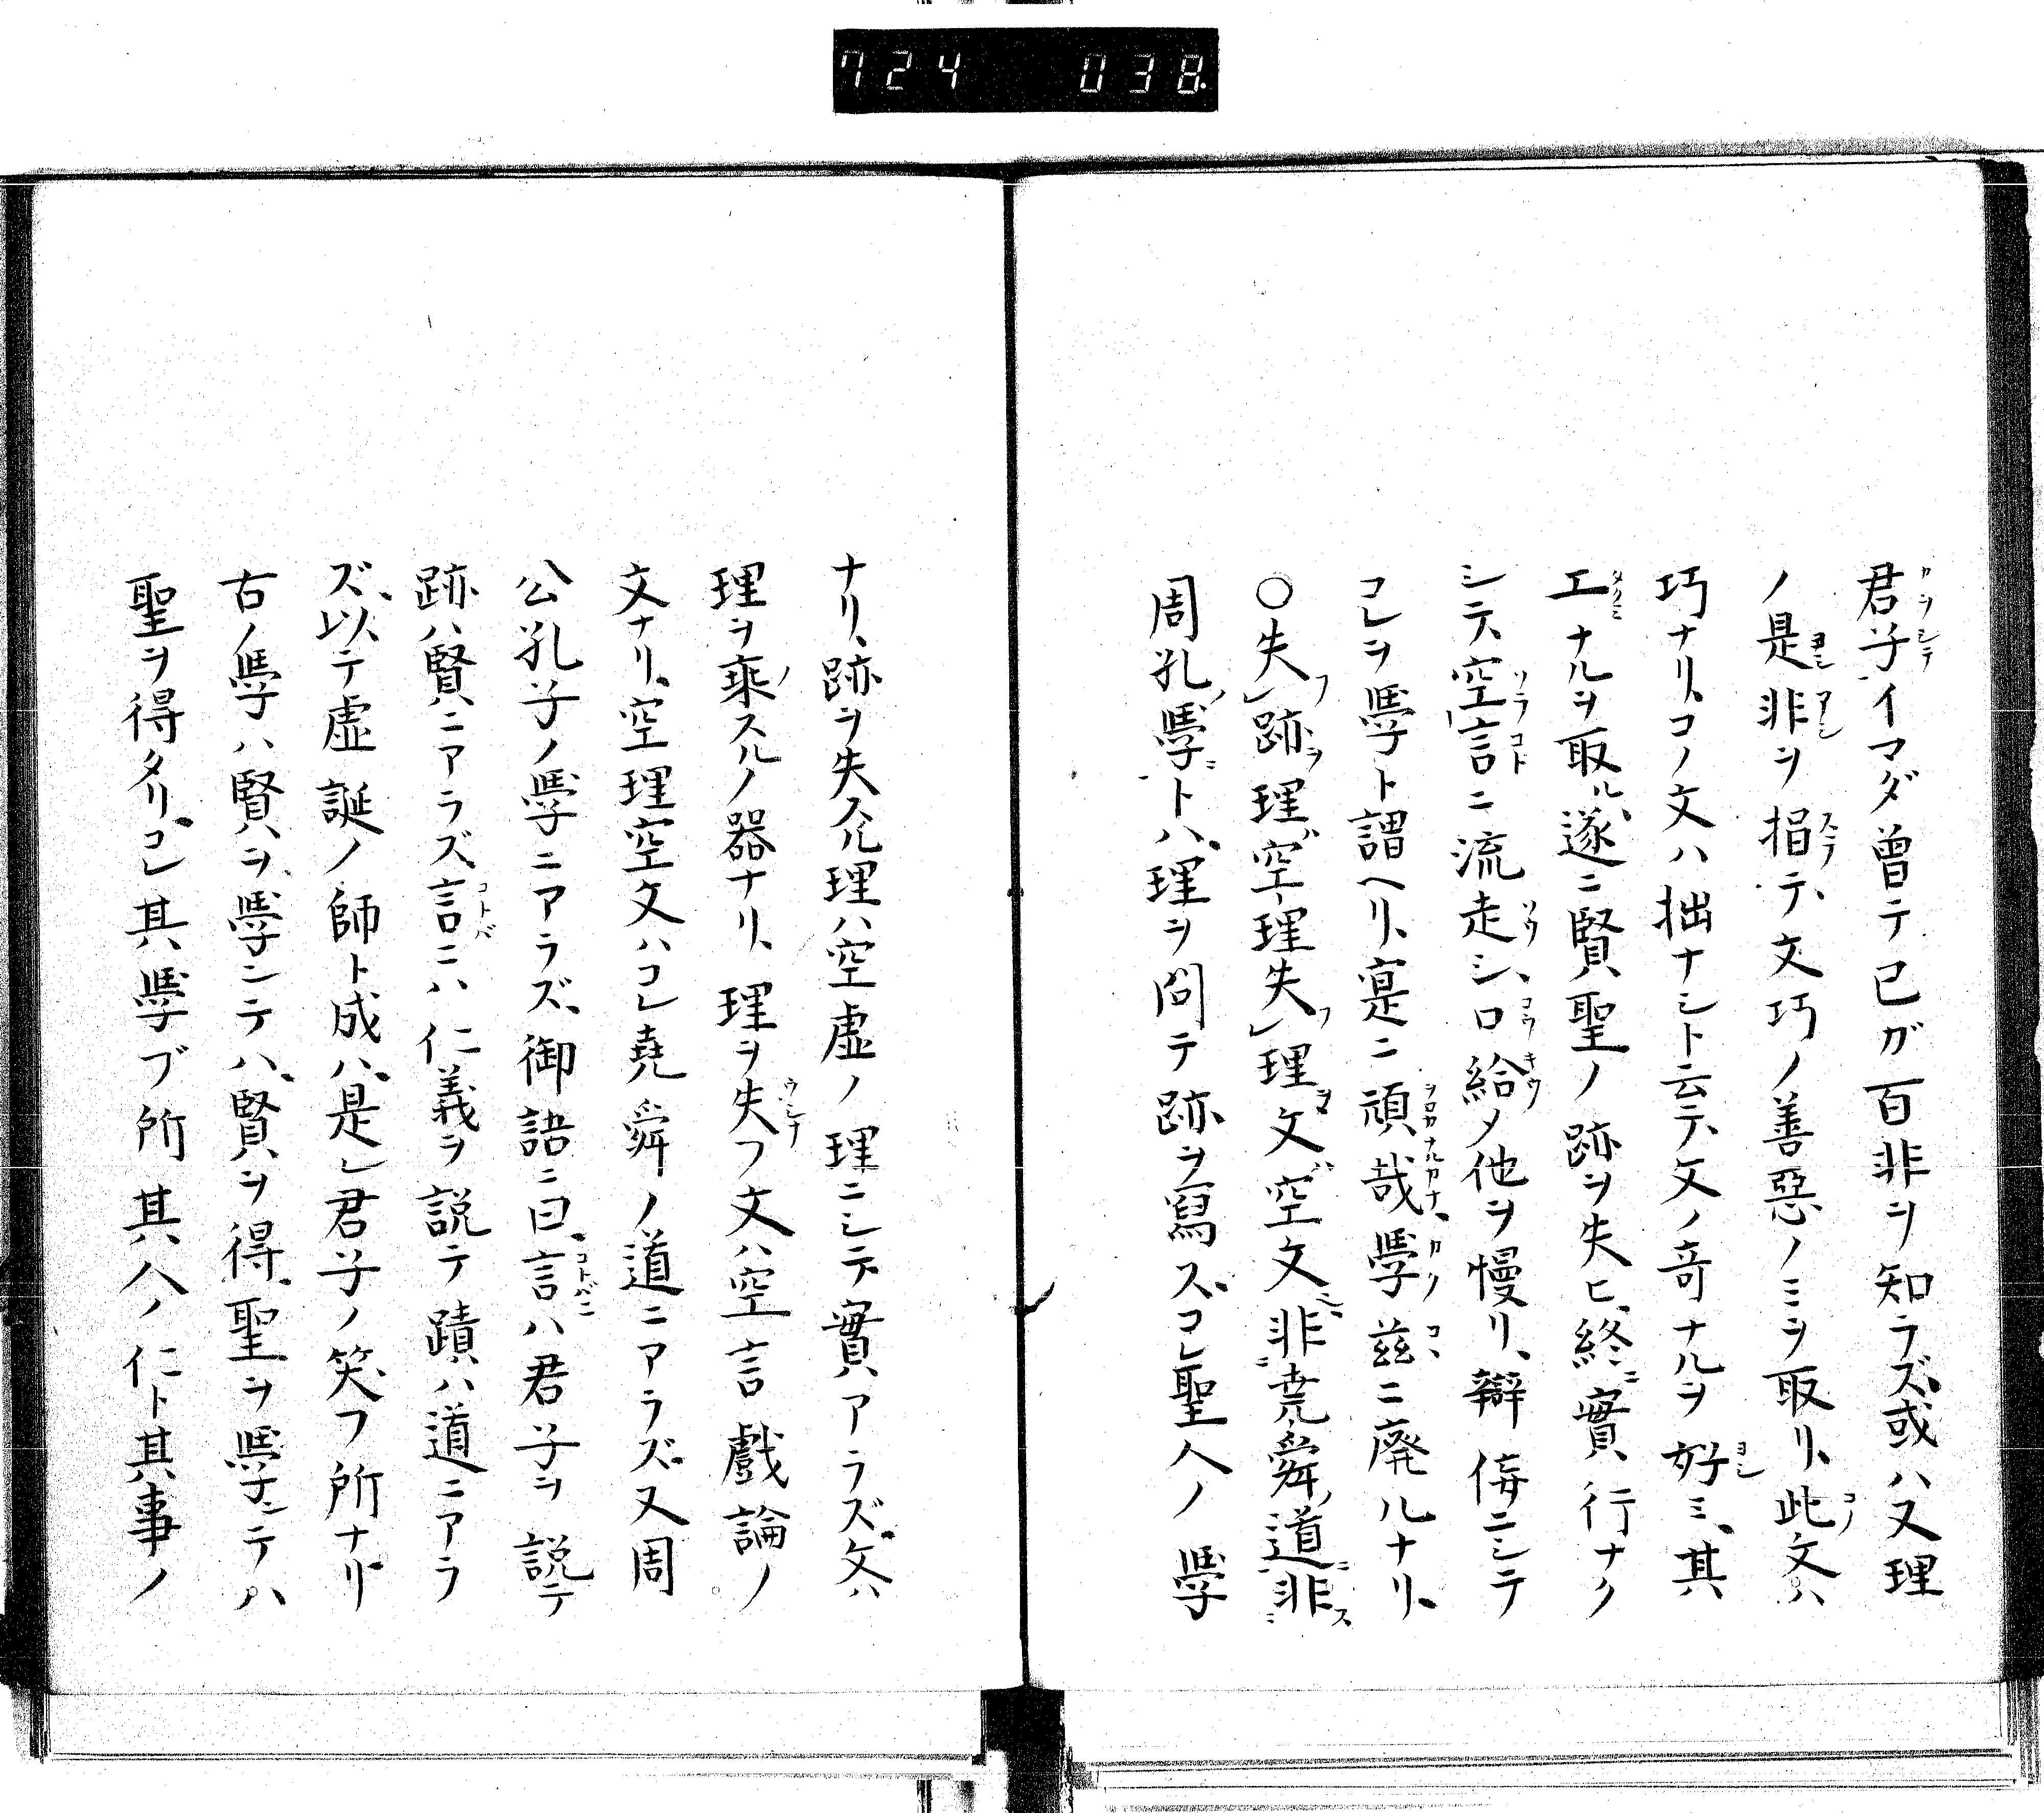 724 038
君子イマダ曽テ已ガ百非ヲ知ラズ、或ハ又理
ノ是非ヲ捐テ、文巧ノ善惡ノミヲ取リ、此文ハ
巧ナリ、コノ文ハ拙ナシト云テ、文ノ奇ナルヲ好ミ、其
工ナルヲ取ル、遂ニ賢聖ノ跡ヲ失ヒ、終ニ實行ナク
シテ、空言ニ流走シ、口給ノ他ヲ慢リ、辯侫ニシテ
コレヲ學ト謂ヘリ、寔ニ頑哉、學茲ニ廃ルナリ、
○失跡理空理失理文空文非堯舜道非
周孔學トハ、理ヲ問テ跡ヲ寫ズ、コレ聖人ノ學
ナリ、跡ヲ失フル理ハ空虚ノ理ニシテ實アラズ、文ハ
理ヲ乘スルノ器ナリ、理ヲ失フ文ハ空言戲論ノ
文ナリ、空理空文ハコレ堯舜ノ道ニアラズ、又周
公孔子ノ學ニアラズ、御語ニ曰、言ハ君子ヲ説テ
跡ハ賢ニアラズ、言ニハ仁義ヲ説テ蹟ハ道ニアラ
ズ、以テ虚誕ノ師ト成ハ、是レ君子ノ笑フ所ナリ
古ノ學ハ賢ヲ學ンテハ、賢ヲ得、聖ヲ學ンテハ
聖ヲ得タリ、コレ其學ブ所其人ノ仁ト其事ノ